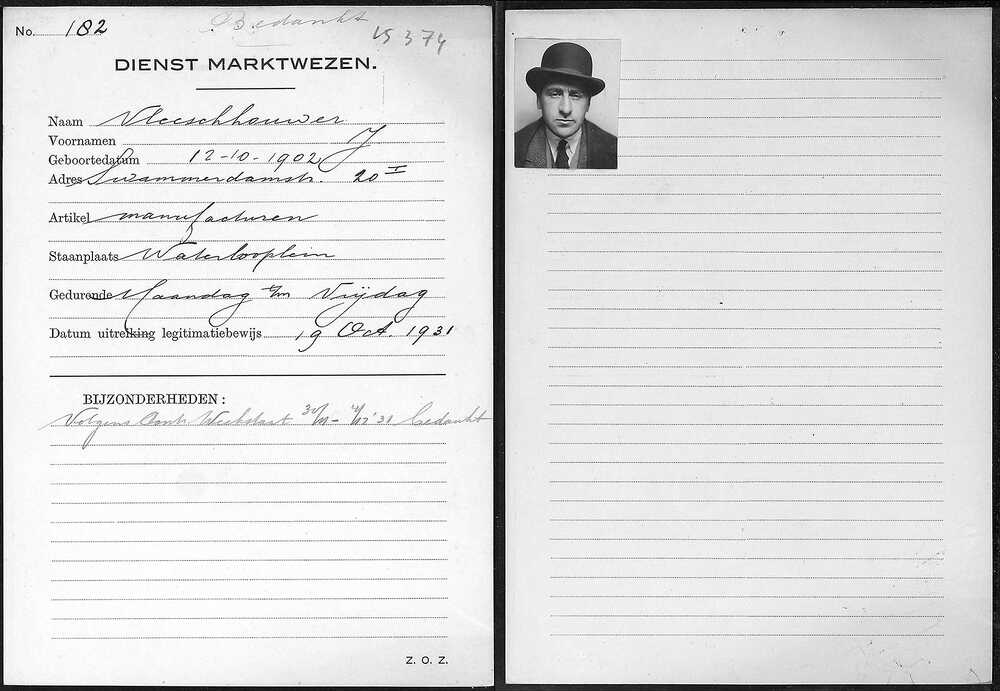 No. 182
Bedankt
15374
DIENST MARKTWEZEN.
Naam Vleeschhouwer
Voornamen J
Geboortedatum 12-10-1902
Adres Swammerdamstr. 20 I
Artikel manufacturen
Staanplaats Waterlooplein
Gedurende Maandag t/m Vrijdag
Datum uitreiking legitimatiebewijs 19 Oct. 1931
BIJZONDERHEDEN:
Volgens Contr. Weekstaat 30/11 - '31 bedankt
Z. O. Z.